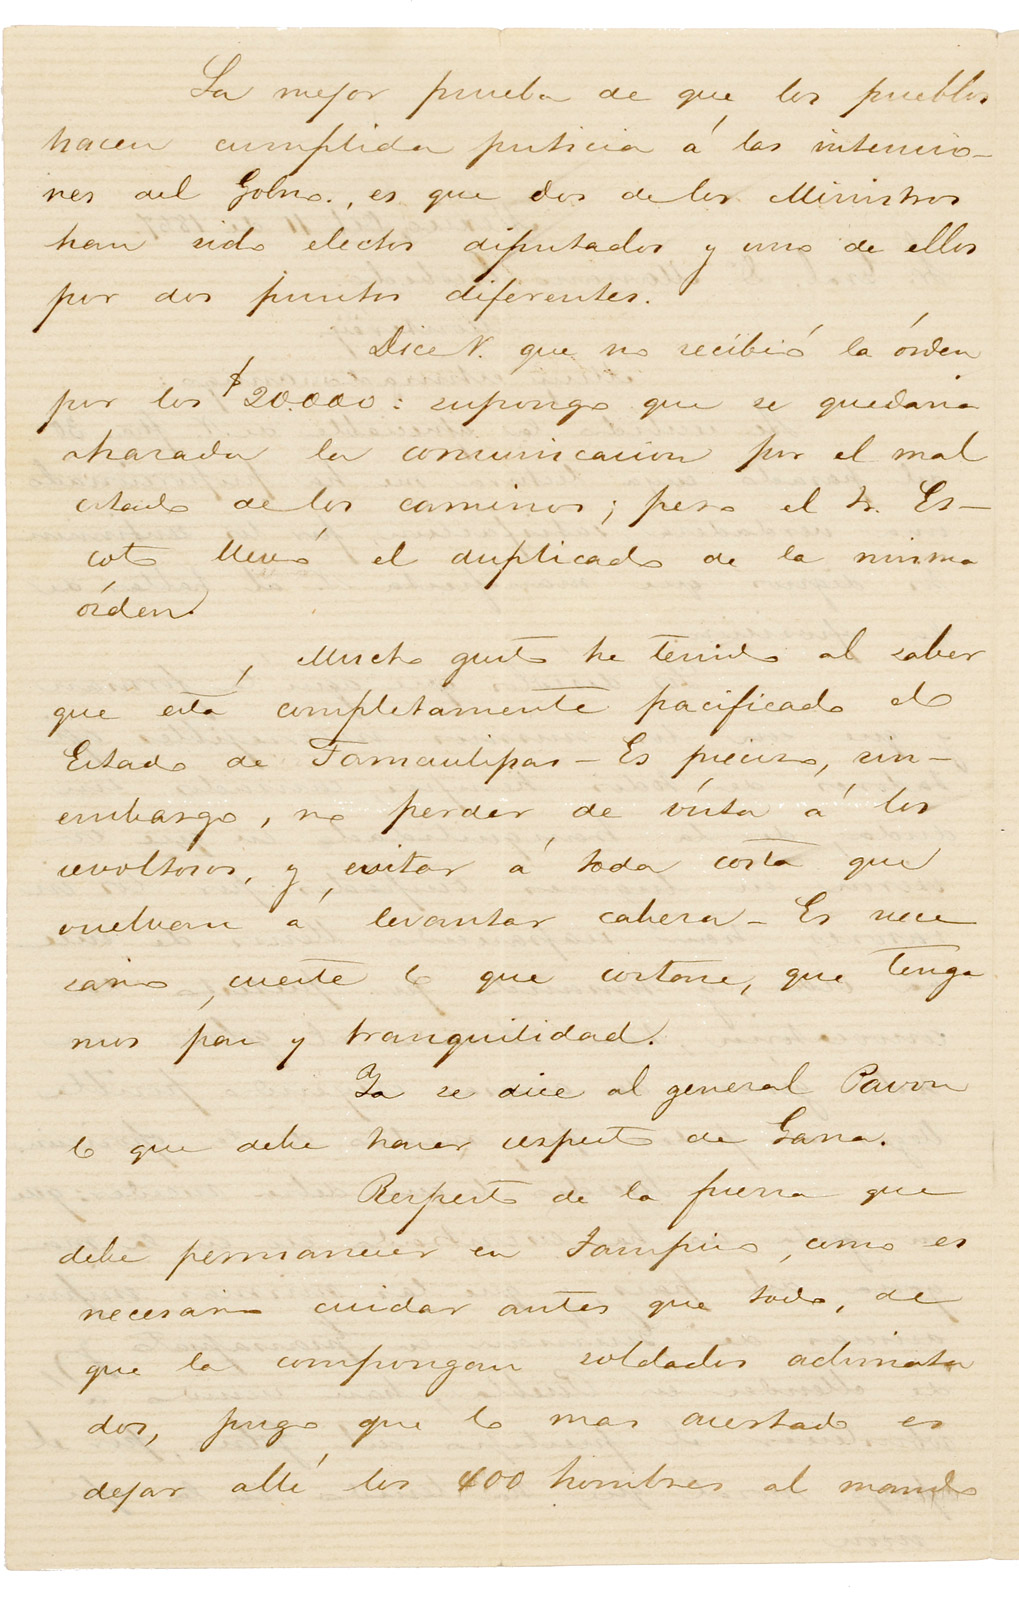 La mejor prueba de que los pueblos
hacen cumplida justicia á las intencio-
nes del Gobno., es que dos de los Ministros
han sido electos diputados y uno de ellos
por dos puntos diferentes.
Dice V. que no recibió la órden
por los $20.000: supongo que se quedaria
atrazada la comunicacion por el mal
estado de los caminos; pero el Sr. Es-
coto llevó el duplicado de la misma
órden.
Mucho gusto he tenido al saber
que está completamente pacificado el
Estado de Tamaulipas - Es preciso, sin-
embargo, no perder de vista á los
revoltosos, y evitar á toda costa que
vuelvan á levantar cabeza - Es nece
sario, cueste lo que costare, que tenga
mos paz y tranquilidad.
Ya se dice al general Pavon
lo que debe hacer respecto de Garza.
Respecto de la fuerza que
debe permanecer en Tampico, como es
necesario cuidar antes que todo, de
que la compongan soldados aclimata
dos, juzgo que lo mas acertado es
dejar allí los 400 hombres al mando